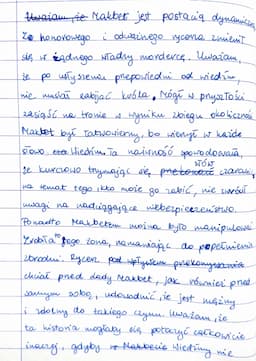 Uważam, że Makbet jest postacią dynamiczną
Ze honorowego i odważnego rycerza zmienił
się w żądnego władzy mordercę. Uważam,
że po usłyszeniu przepowiedni od wiedźm,
nie musiał zabijać króla. Mógł w przyszłości
zasiąść na tronie w wyniku zbiegu okoliczności
Makbet był łatwowierny, bo wierzył w każde
słowo Wiedźm. Ta naiwność spowodowała,
że kurczowo trzymając się słów czarownic
na temat tego kto może go zabić, nie zwrócił
uwagi na nadciągające niebezpieczeństwo.
Ponadto Makbetem można było manipulować
Zrobiła to jego żona, namawiając do popełnienia
zbrodni. Rycerz pod wpływem przekonywania
chciał przed lady Makbet, jak również przed
samym sobą, udowodnić, że jest mężny
i zdolny do takiego czynu. Uważam, że
ta historia mogłaby się potoczyć całkowicie
inaczej, gdyby Wiedźmy nie